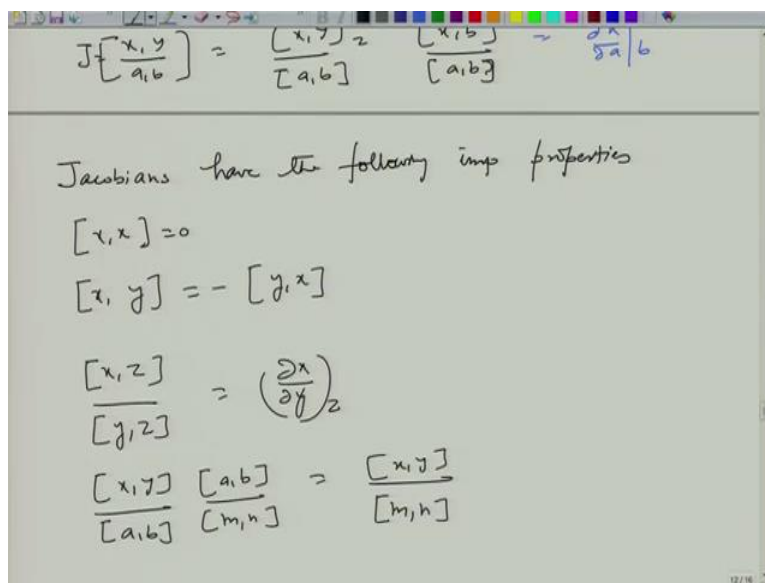 J=[x, y / a, b] = [x, y] / [a, b] [x, b] / [a, b] = ∂x/∂a|b
Jacobians have the following imp properties
[x, x] = 0
[x, y] = - [y, x]
[x, z] / [y, z] = (∂x/∂y)z
[x, y] / [a, b] [a, b] / [m, n] = [x, y] / [m, n]
12/16